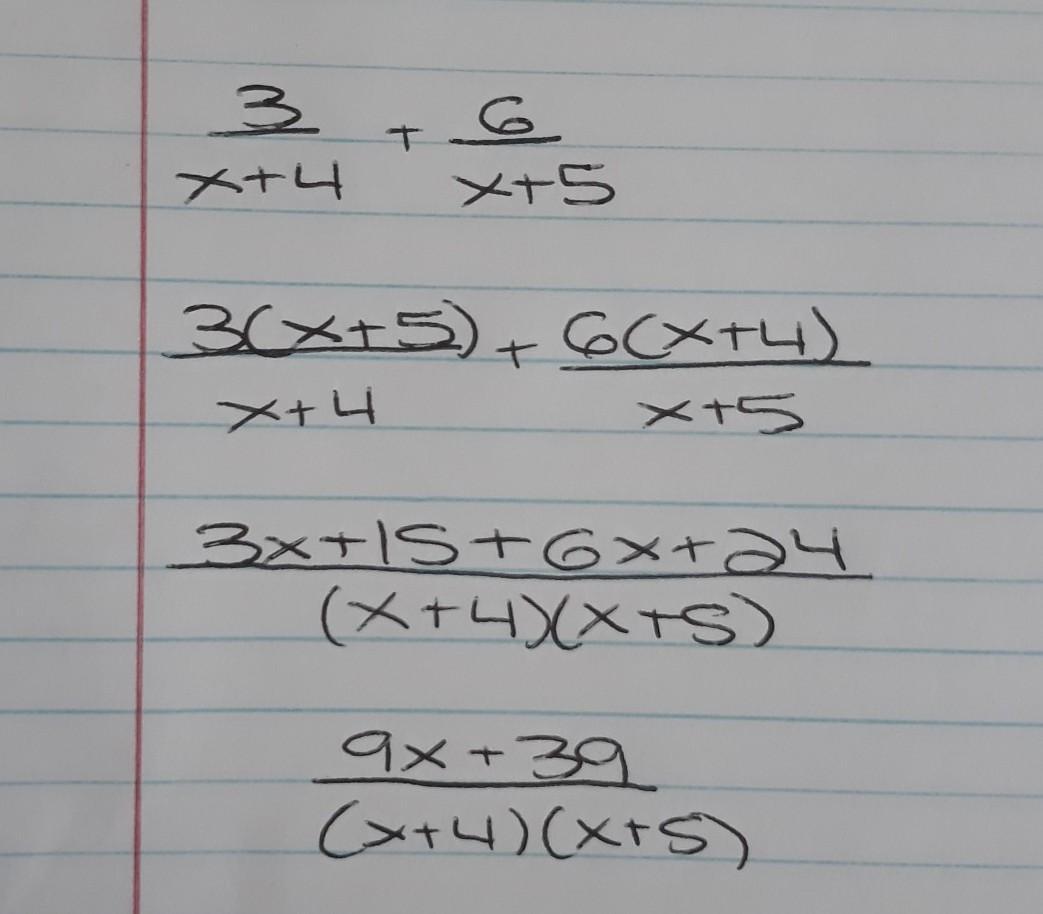 3/(x+4) + 6/(x+5)
3(x+5)/(x+4) + 6(x+4)/(x+5)
(3x+15+6x+24)/((x+4)(x+5))
(9x+39)/((x+4)(x+5))